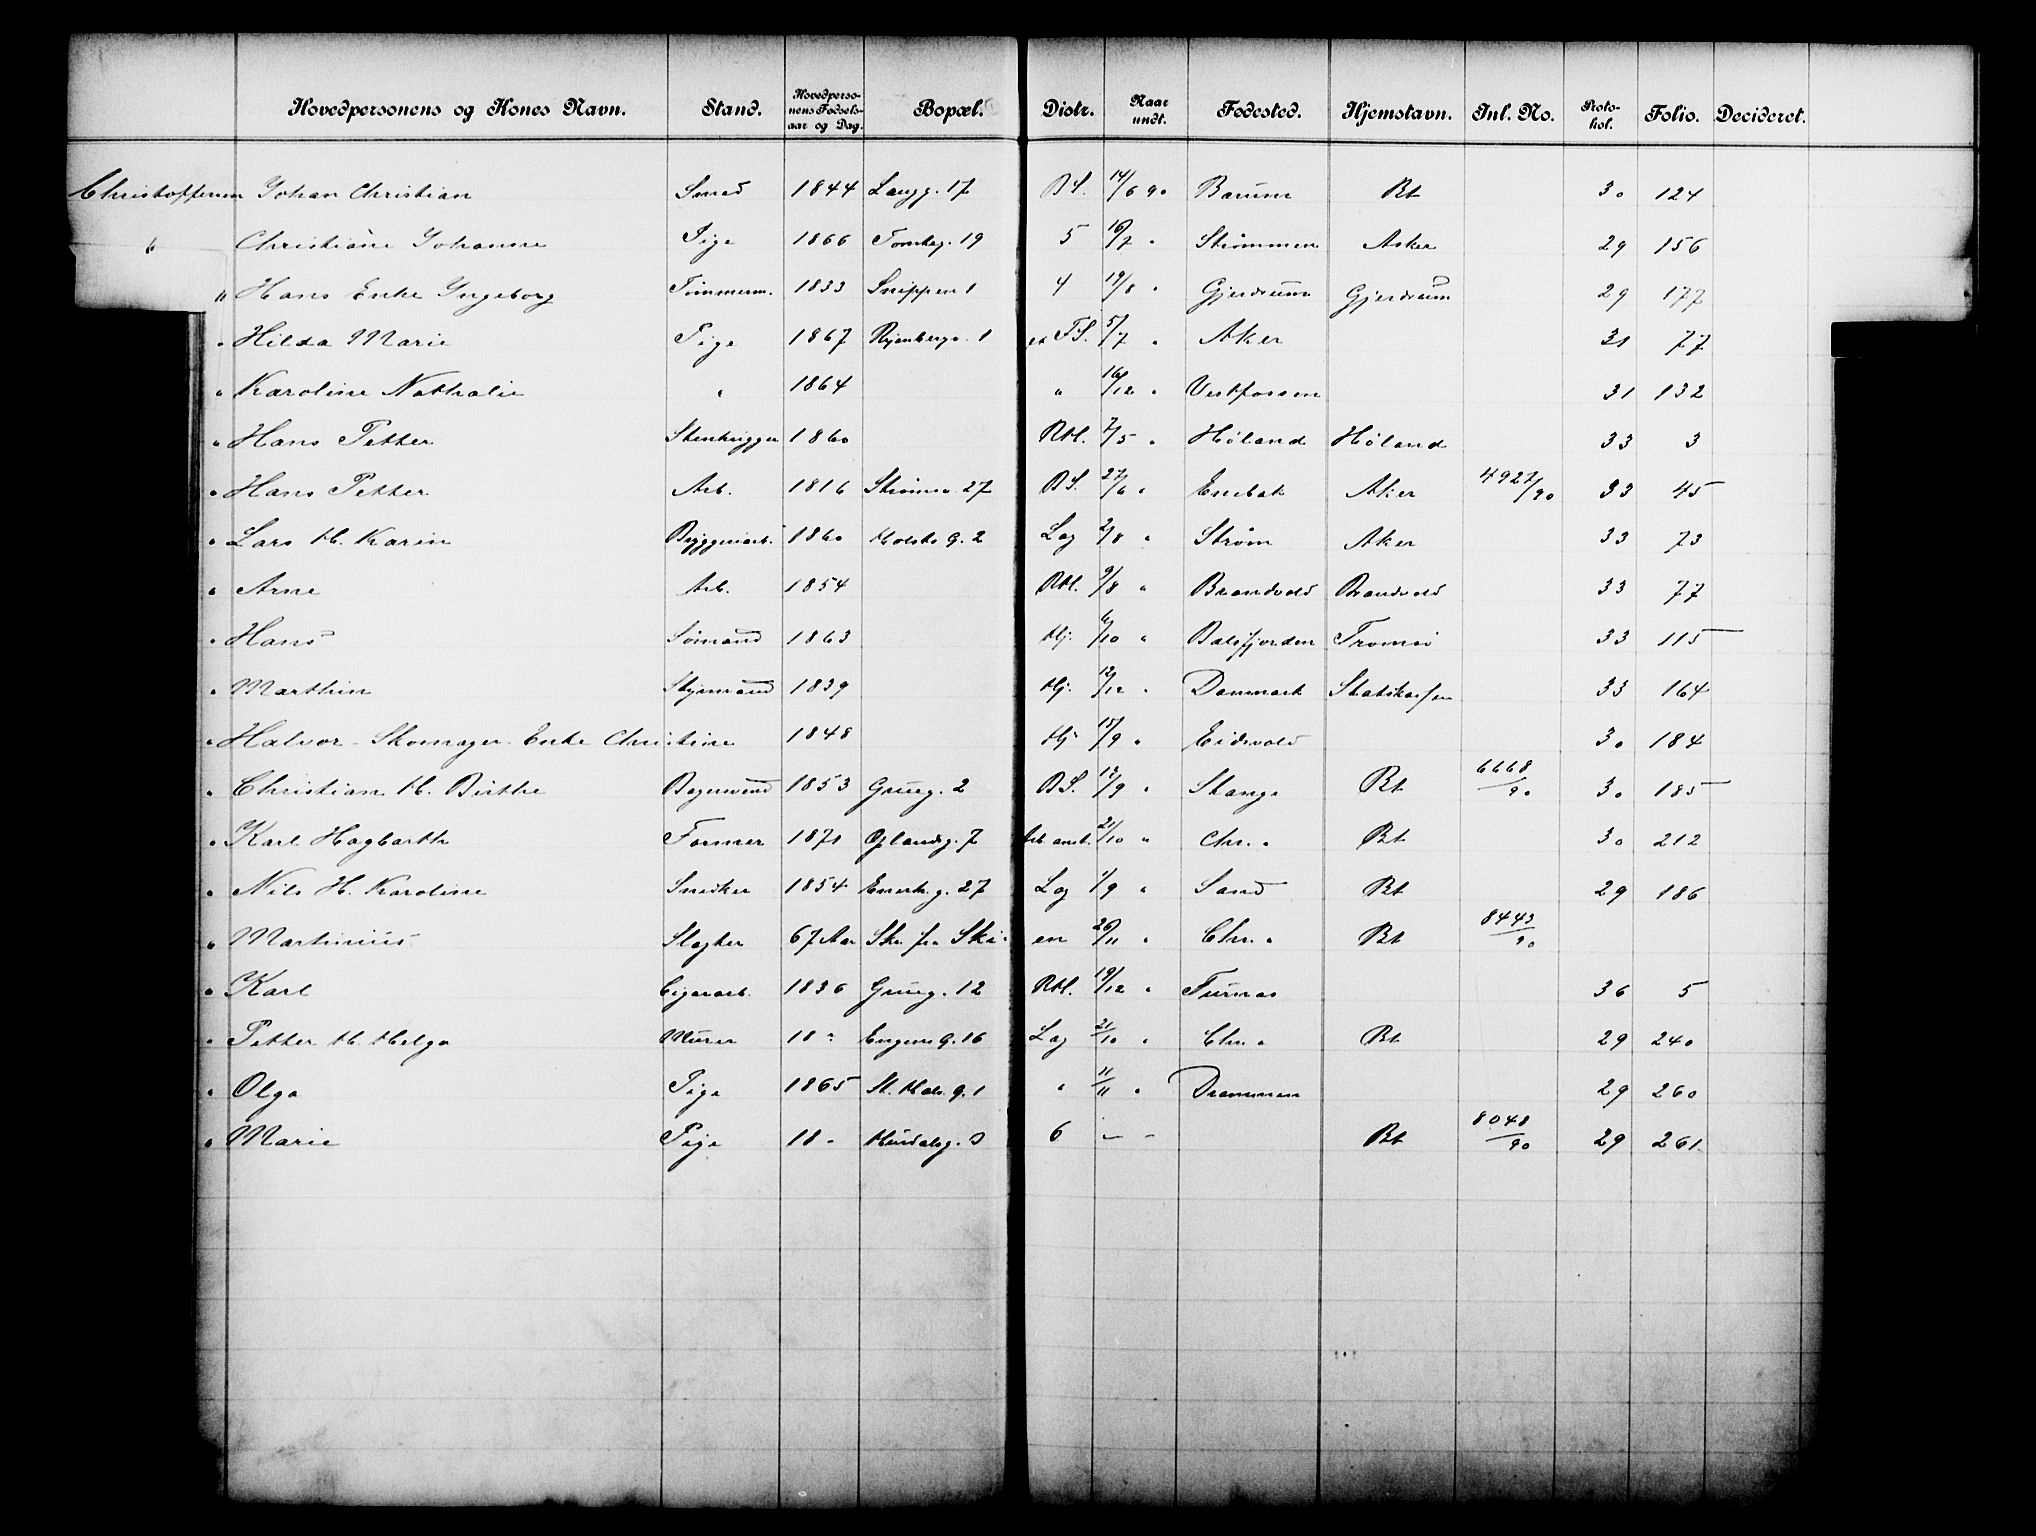 Hovedpersonens og Kones Navn. Stand. Hovedpersonens Fødselsaar og Dag. Bopæl. Distr. Naar undt. Fødested. Hjemstavn. Inl. No. Protokol. Folio. Decideret.
Christoffersen Johan Christian Smed 1844 Langg. 17 BS. 14/6 90 Bærum Bt 30 124
" Christiane Johanne Pige 1866 Tomteg. 19 5 16/7 " Strømmen Asker 29 156
" Hans Enke Ingeborg Tømmerm. 1833 Snippen 1 4 19/8 " Gjerdrum Gjerdrum 29 177
" Hilda Marie Pige 1867 Ryenbergv. 1 FS. 5/7 " Aker 31 77
" Karoline Nathalie " 1864 " 16/12 " Vestfossen 31 132
" Hans Petter Stenhugger 1860 RH. 7/5 " Høland Høland 33 3
" Hans Petter Arb. 1816 Strømsv. 27 BS. 27/6 " Enebak Aker 4927/90 33 45
" Lars H. Karin Bryggeriarb. 1860 Holsts G. 2 Lag 2/8 " Strøm Aker 33 73
" Arne Arb. 1854 RH. 9/8 " Brandvold Brandvold 33 77
" Hans Sømand 1863 Hj. /10 " Balsfjorden Tromsø 33 115
" Marthin Styrmand 1839 Hj. 12/12 " Danmark Statskassen 33 164
" Halvor - Skomager - Enke Christine 1848 Hj 15/9 " Eidsvold 30 184
" Christian H. Birthe Bogermand 1853 Grueg. 2 BS. 12/9 " Stange Bt 6668/90 30 185
" Karl Hagbarth Former 1871 Oplandsg. 7 Arb anst. 21/10 " Chr. " Bt 30 212
" Nils H. Karoline Snedker 1854 Enerh. g. 27 Lag 1/9 " Sand Bt 29 186
" Martinius Slagter 67 Aar Skr. fra Skien 26/11 " Chr. " Bt 8443/90
" Karl Cigararb. 1836 Grueg. 12 RH. 19/12 " Furnæs 36 5
" Petter H. Helga Murer 18 - Engens G. 16 Lag 21/10 " Chr. " Bt 29 240
" Olga Pige 1865 St. Halv. g. 1 " 11/11 " Drammen 29 260
" Marie Pige 18 - Hurdalsg. 6 - - Bt 8048/90 29 261